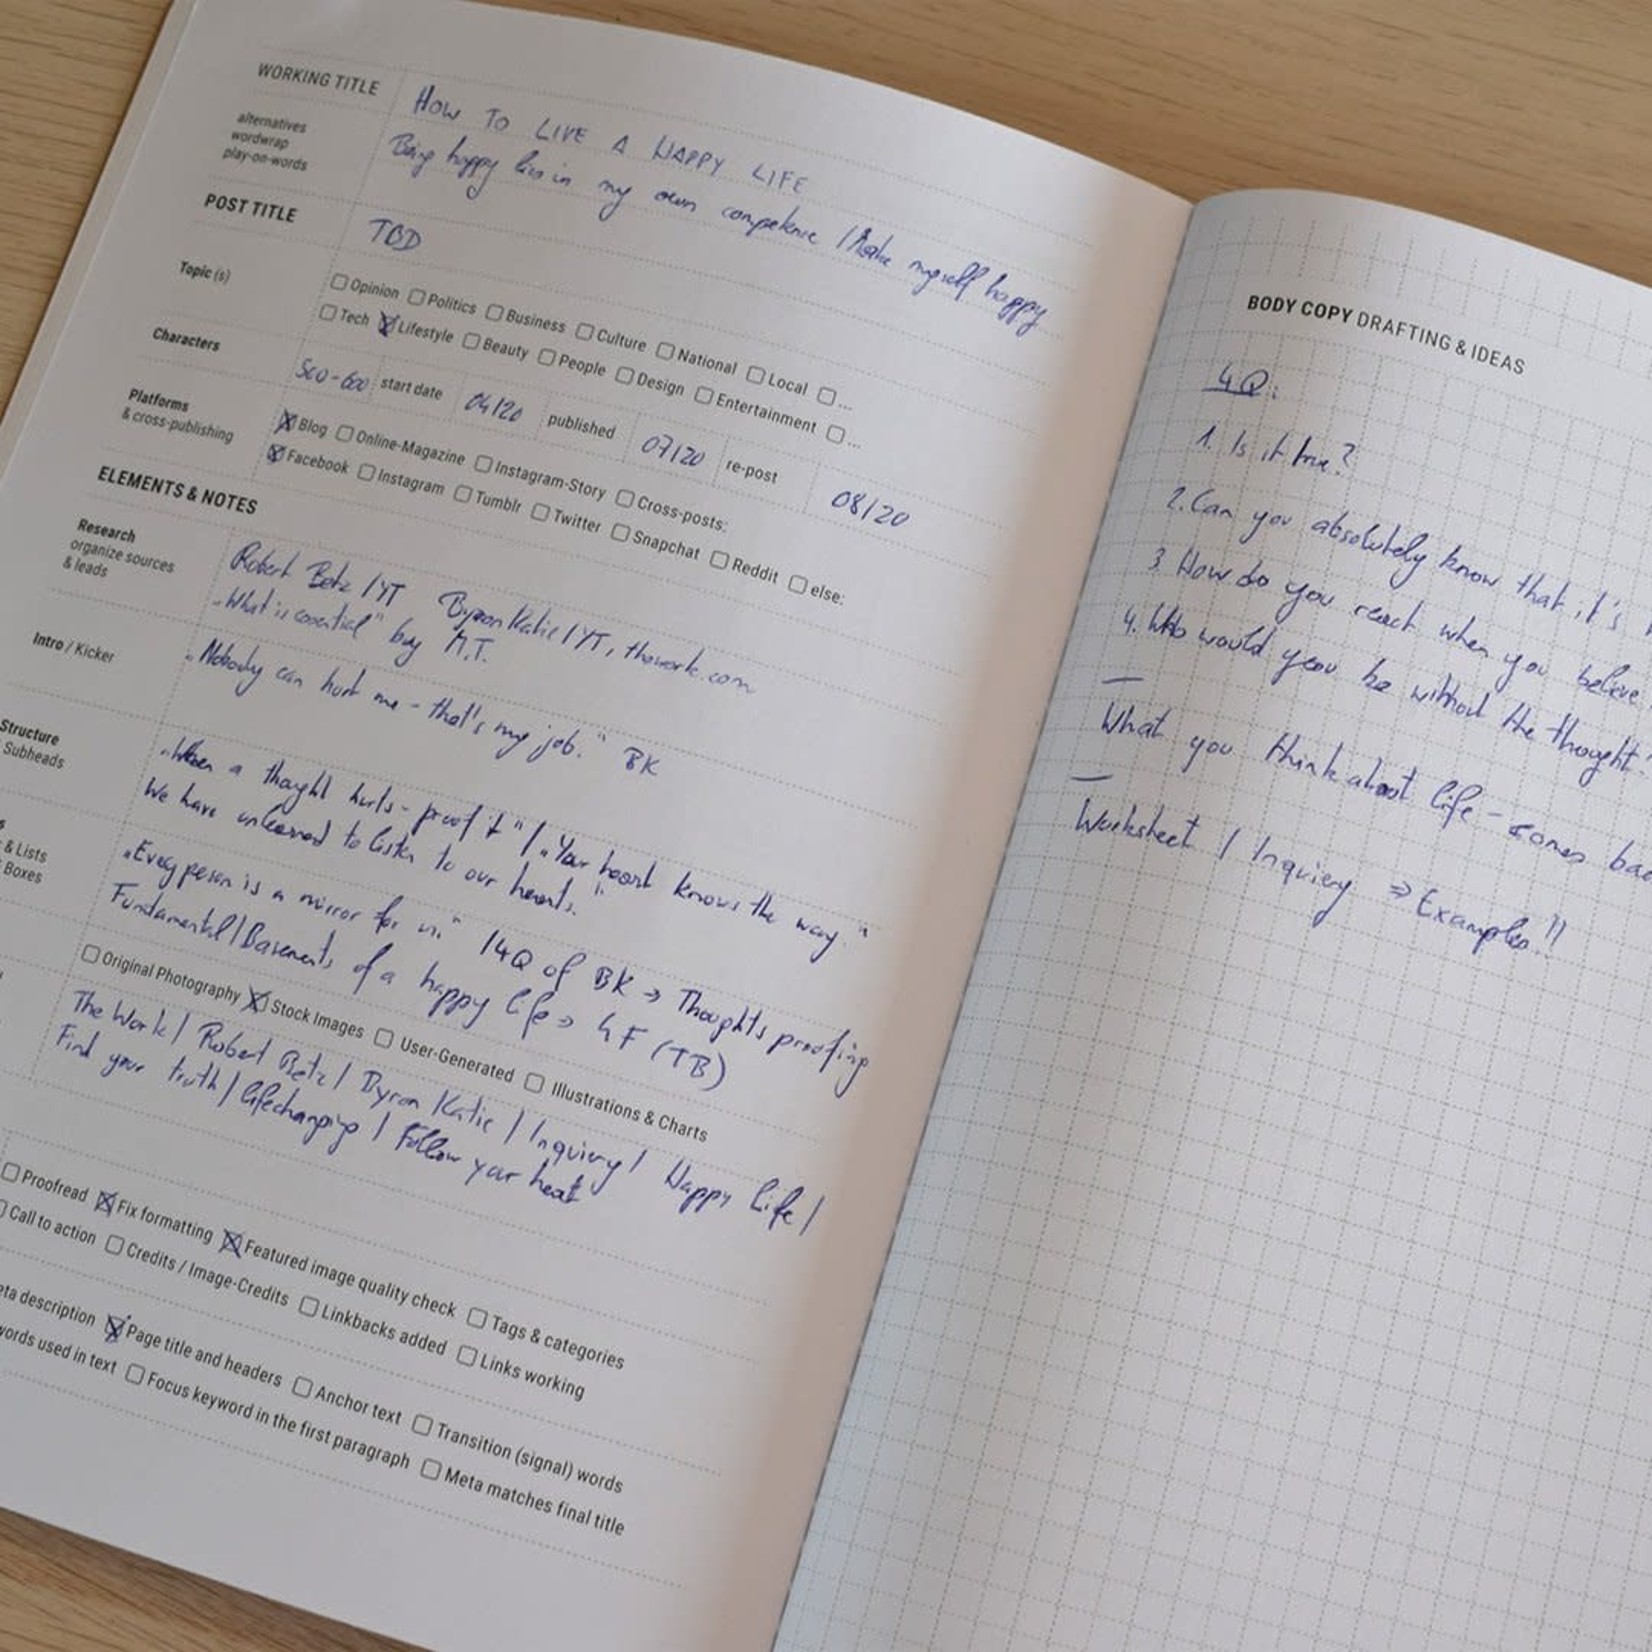 WORKING TITLE
HOW TO LIVE A HAPPY LIFE
alternatives
wordwrap
play-on-words
Being happy lies in my own competence / Make myself happy
POST TITLE
TBD
Topic (s)
Opinion Politics Business Culture National Local ...
Tech Lifestyle Beauty People Design Entertainment ...
Characters
500-600 start date 04/20 published 07/20 re-post 08/20
Platforms
& cross-publishing
Blog Online-Magazine Instagram-Story Cross-posts:
Facebook Instagram Tumblr Twitter Snapchat Reddit else:
ELEMENTS & NOTES
Research
organize sources
& leads
Robert Betz / YT Byron Katie / YT, thework.com
„What is essential" by M.T.
Intro / Kicker
„Nobody can hurt me - that's my job." BK
Structure
Subheads
„When a thought hurts - proof it" / „Your heart knows the way."
We have unlearned to listen to our hearts."
& Lists
Boxes
„Every person is a mirror for us." / 4Q of BK → Thoughts proofing
Fundamental / Basements of a happy life → 4F (TB)
Original Photography Stock Images User-Generated Illustrations & Charts
The Work / Robert Betz / Byron Katie / Inquiry / Happy Life /
Find your truth / lifechanging / Follow your heat
Proofread Fix formatting Featured image quality check Tags & categories
Call to action Credits / Image-Credits Linkbacks added Links working
description Page title and headers Anchor text Transition (signal) words
used in text Focus keyword in the first paragraph Meta matches final title
BODY COPY DRAFTING & IDEAS
4Q:
1. Is it true?
2. Can you absolutely know that it's
3. How do you react when you believe
4. Who would you be without the thought?
—
What you think about life - comes
—
Worksheet / Inquiery ⇒ Examples!!